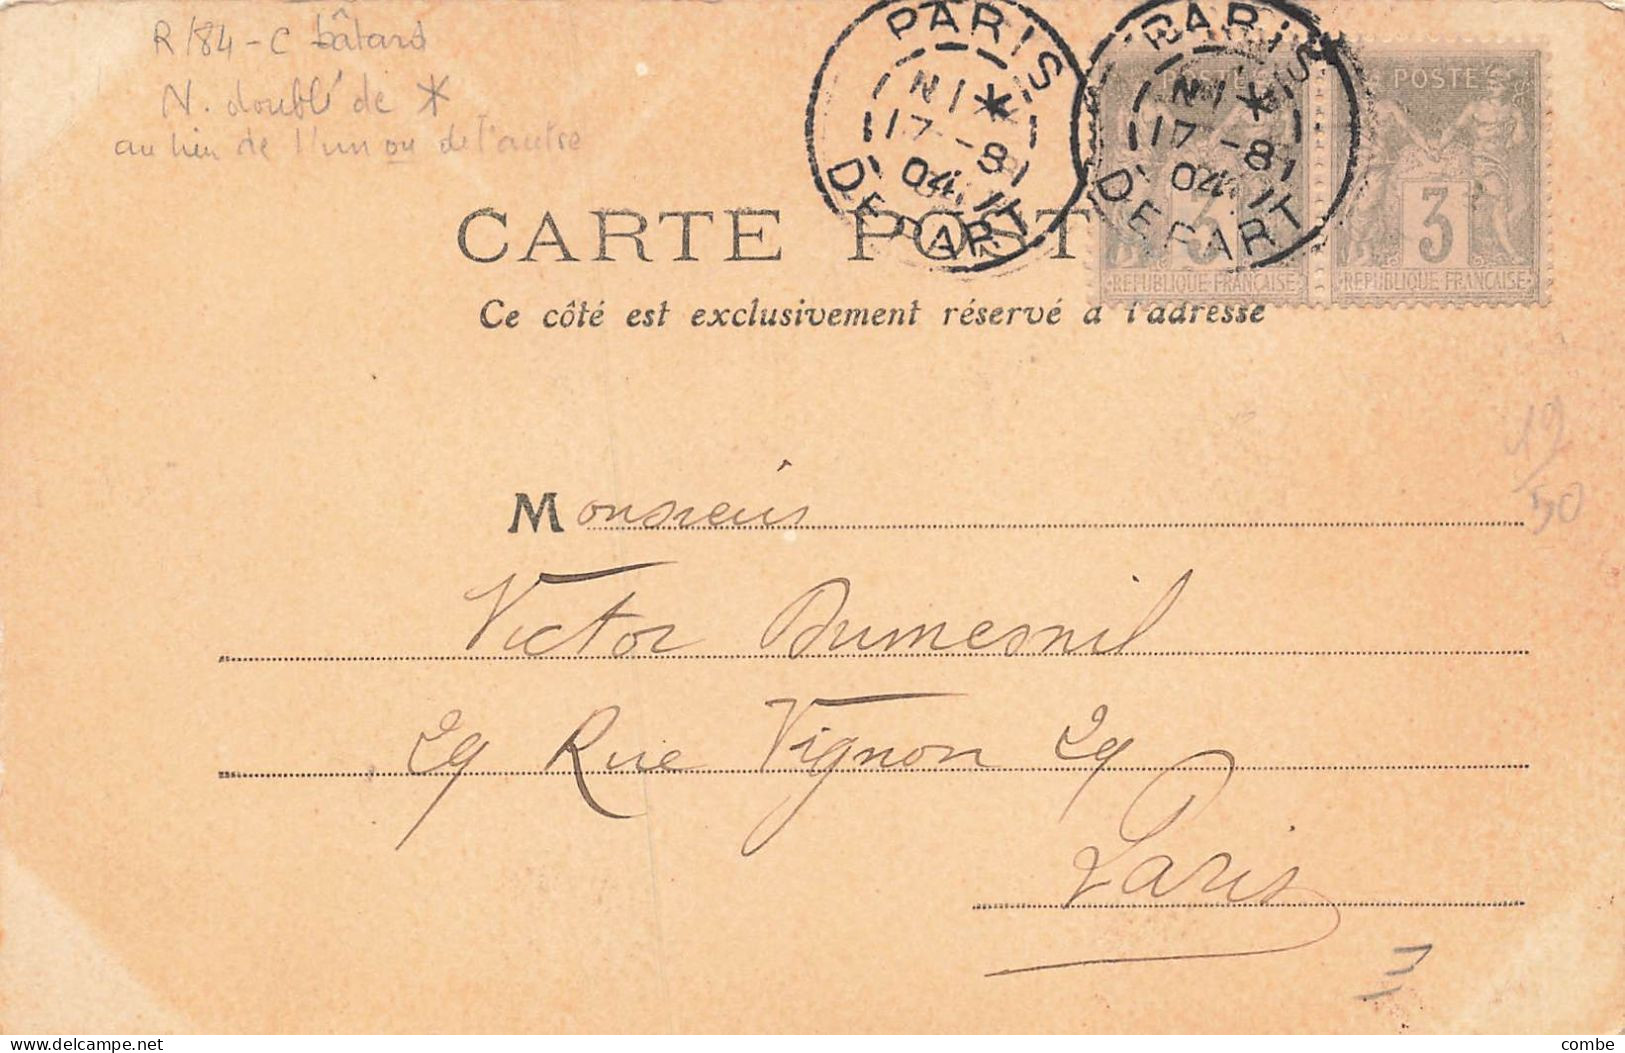 R/84 - C bâtard
N. doublé de *
au lieu de l'un ou de l'autre
PARIS
N1 *
17 - 8
04
DEPART
PARIS
N1 *
17 - 8
04
DEPART
POSTE
3
REPUBLIQUE FRANÇAISE
POSTE
3
REPUBLIQUE FRANÇAISE
CARTE POST
Ce côté est exclusivement réservé à l'adresse
12
50
Monsieur
Victor Dumesnil
29 Rue Vignon 29
Paris
combe